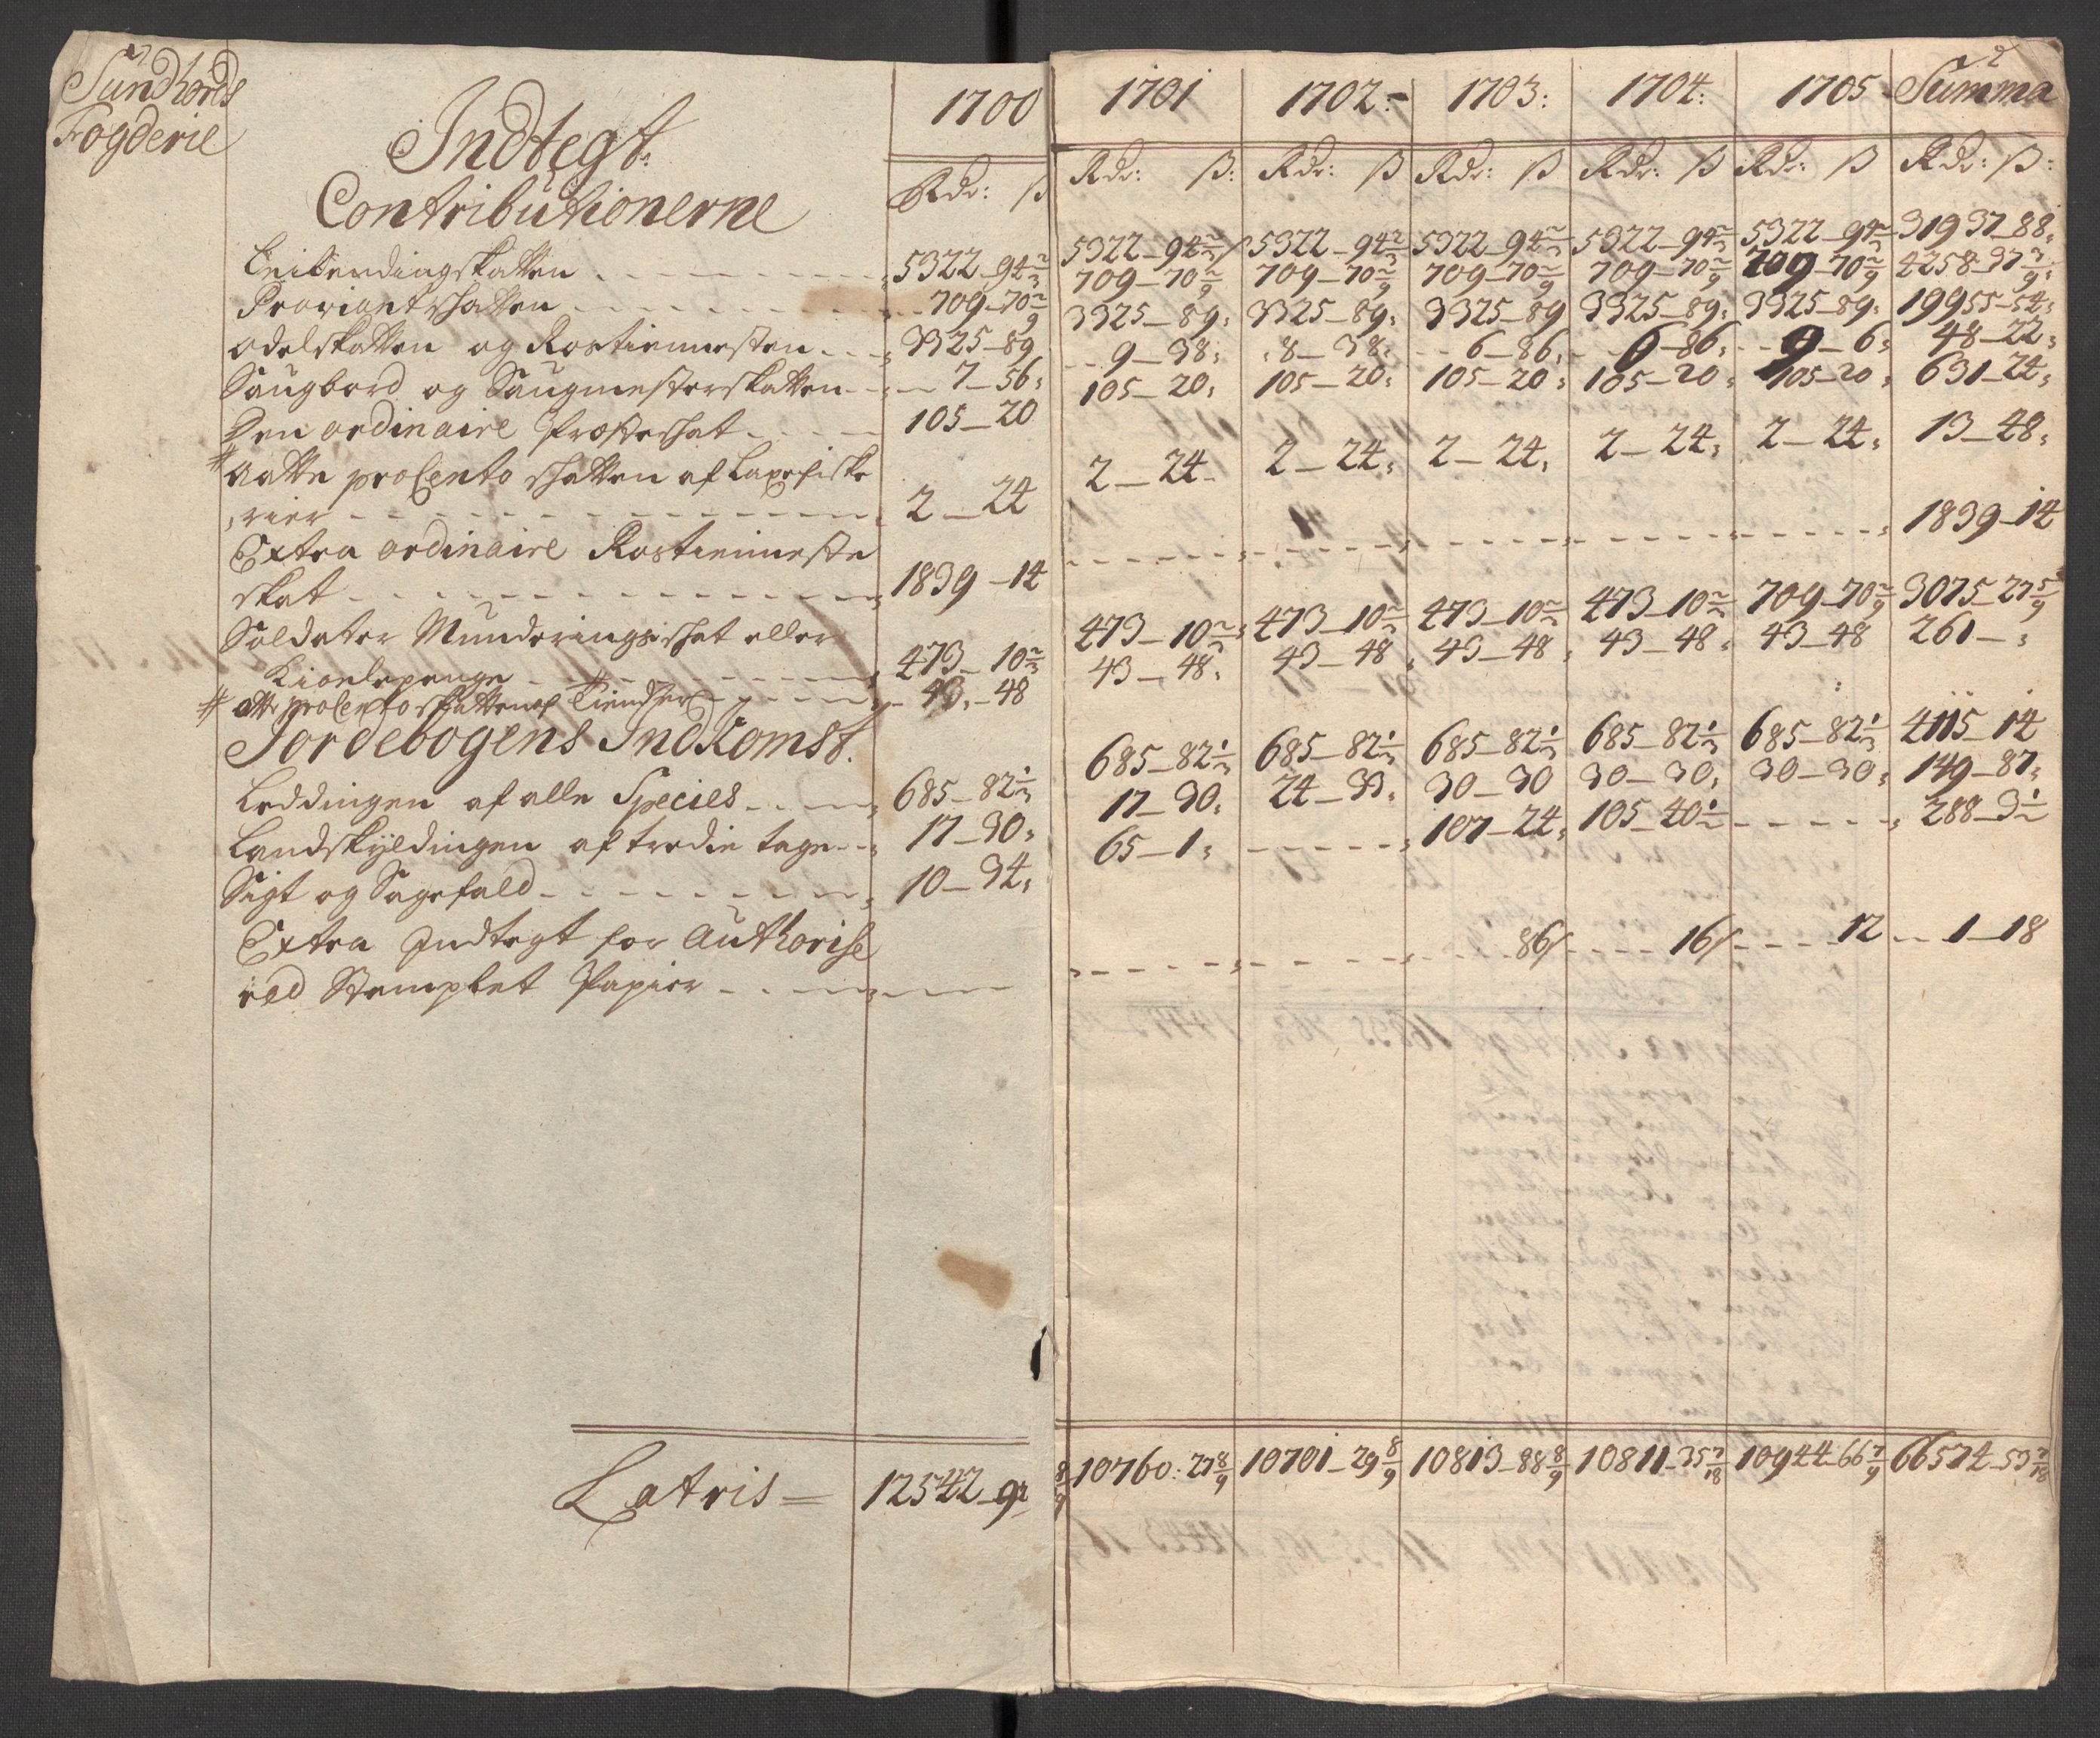 Sundhords
Fogderie
Indtegt
Contributionerne
1700 1701 1702: 1703: 1704: 1705 Summa
Rdr: ß Rdr: ß: Rdr: ß Rdr: ß Rdr: ß Rdr: ß Rdr: ß:
Leilendingskatten 5322-94 2/3 5322-94 2/3 5322-94 2/3 5322-94 2/3 5322-94 2/3 5322-94 2/3 31937-88:
Proviantskatten 709-70 2/9 709-70 2/9 709-70 2/9 709-70 2/9 709-70 2/9 709-70 2/9 4258-37 3/9
Odelskatten og Rostiennesten 3325-89 3325-89: 3325-89: 3325-89 3325-89: 3325-89: 19955-54:
Saugbord og Saugmesterskatten 7-56: 9-38: 8-38: 6-86: 6-86: 9-6: 48-22:
Den ordinaire Prosteskat 105-20 105-20: 105-20: 105-20: 105-20: 105-20: 631-24:
# Aatte proCento skatten af Laxefiske
rier 2-24 2-24 2-24: 2-24: 2-24: 2-24: 13-48:
Extra ordinaire Rostienneste
skat 1839-14 1839-14
Soldater Munderingskat eller
Kiolepenge 473-10 2/3 473-10 2/3 473-10 2/3 473-10 2/3 473-10 2/3 709-70 2/9 3075-27 5/9
# otte proCento skatten af Tiender 43-48 43-48: 43-48: 43-48: 43-48: 43-48 261-:
Jordebogens Indkomst.
Leddingen af alle Species 685-82 1/3 685-82 1/3 685-82 1/3 685-82 1/3 685-82 1/3 685-82 1/3 4115-14
Landskyldingen af tredie tage 17-30: 17-30: 24-33: 30-30 30-30: 30-30: 149-87:
Sigt og Sagefald 10-34: 65-1: 107-24: 105-40 1/2 288-3 1/2
Extra Indtegt for Authorise
red Stemplet Papier 86 16 12 1-18
Latris 12542-91 8/9 10760:27 8/9 10701-29 8/9 10813-88 8/9 10811-35 7/18 10944-66 7/9 66574-53 7/18